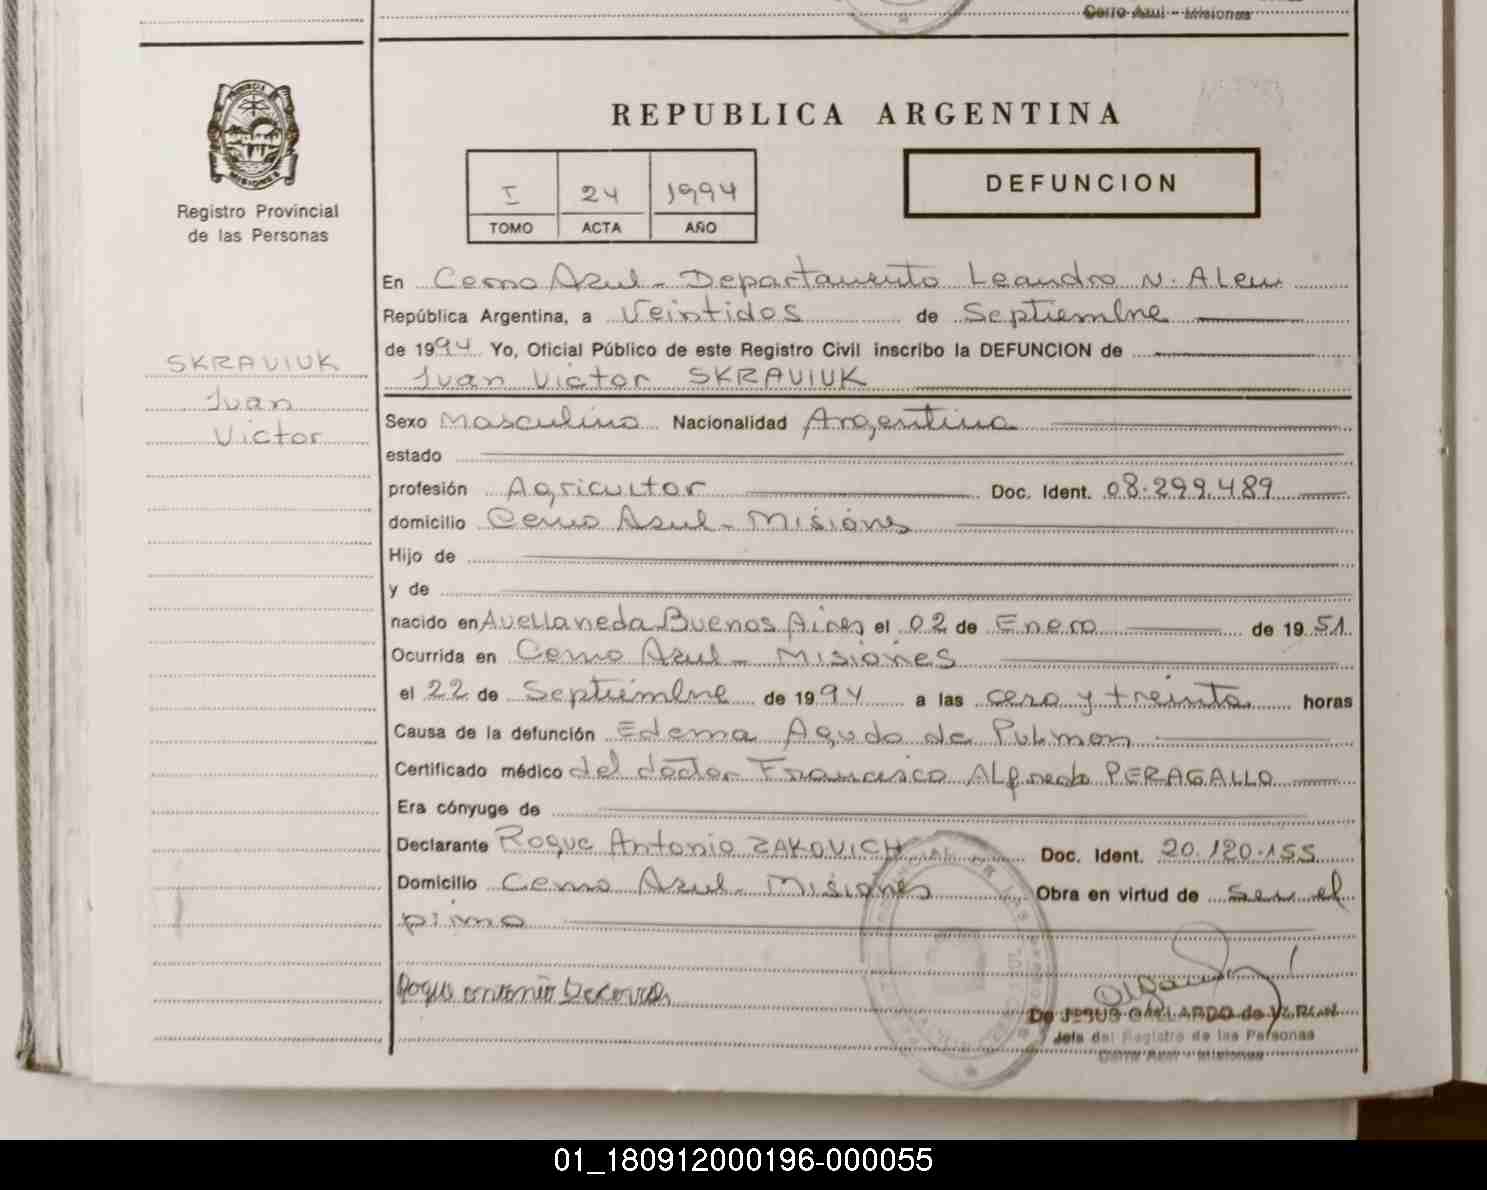 Cerro Azul - Misiones
PROVINCIA
MISIONES
Registro Provincial
de las Personas
REPUBLICA ARGENTINA
I 24 1994
TOMO ACTA AÑO
DEFUNCION
En Cerro Azul - Departamento Leandro N. Alem
República Argentina, a Veintidos de Septiembre
de 1994 Yo, Oficial Público de este Registro Civil inscribo la DEFUNCION de
Juan Victor SKRAVIUK
SKRAVIUK
Juan
Victor
Sexo Masculino Nacionalidad Argentina
estado
profesión Agricultor Doc. Ident. 08.299.489
domicilio Cerro Azul - Misiones
Hijo de
y de
nacido en Avellaneda Buenos Aires el 02 de Enero de 1951
Ocurrida en Cerro Azul - Misiones
el 22 de Septiembre de 1994 a las cero y treinta horas
Causa de la defunción Edema Agudo de Pulmon
Certificado médico del doctor Francisco Alfredo PERAGALLO
Era cónyuge de
Declarante Roque Antonio ZAKOVICH Doc. Ident. 20.120.155
Domicilio Cerro Azul - Misiones Obra en virtud de ser el
primo
Roque Antonio
De JESUS GALLARDO de
Jefe del Registro de las Personas
Cerro Azul - Misiones
01_180912000196-000055